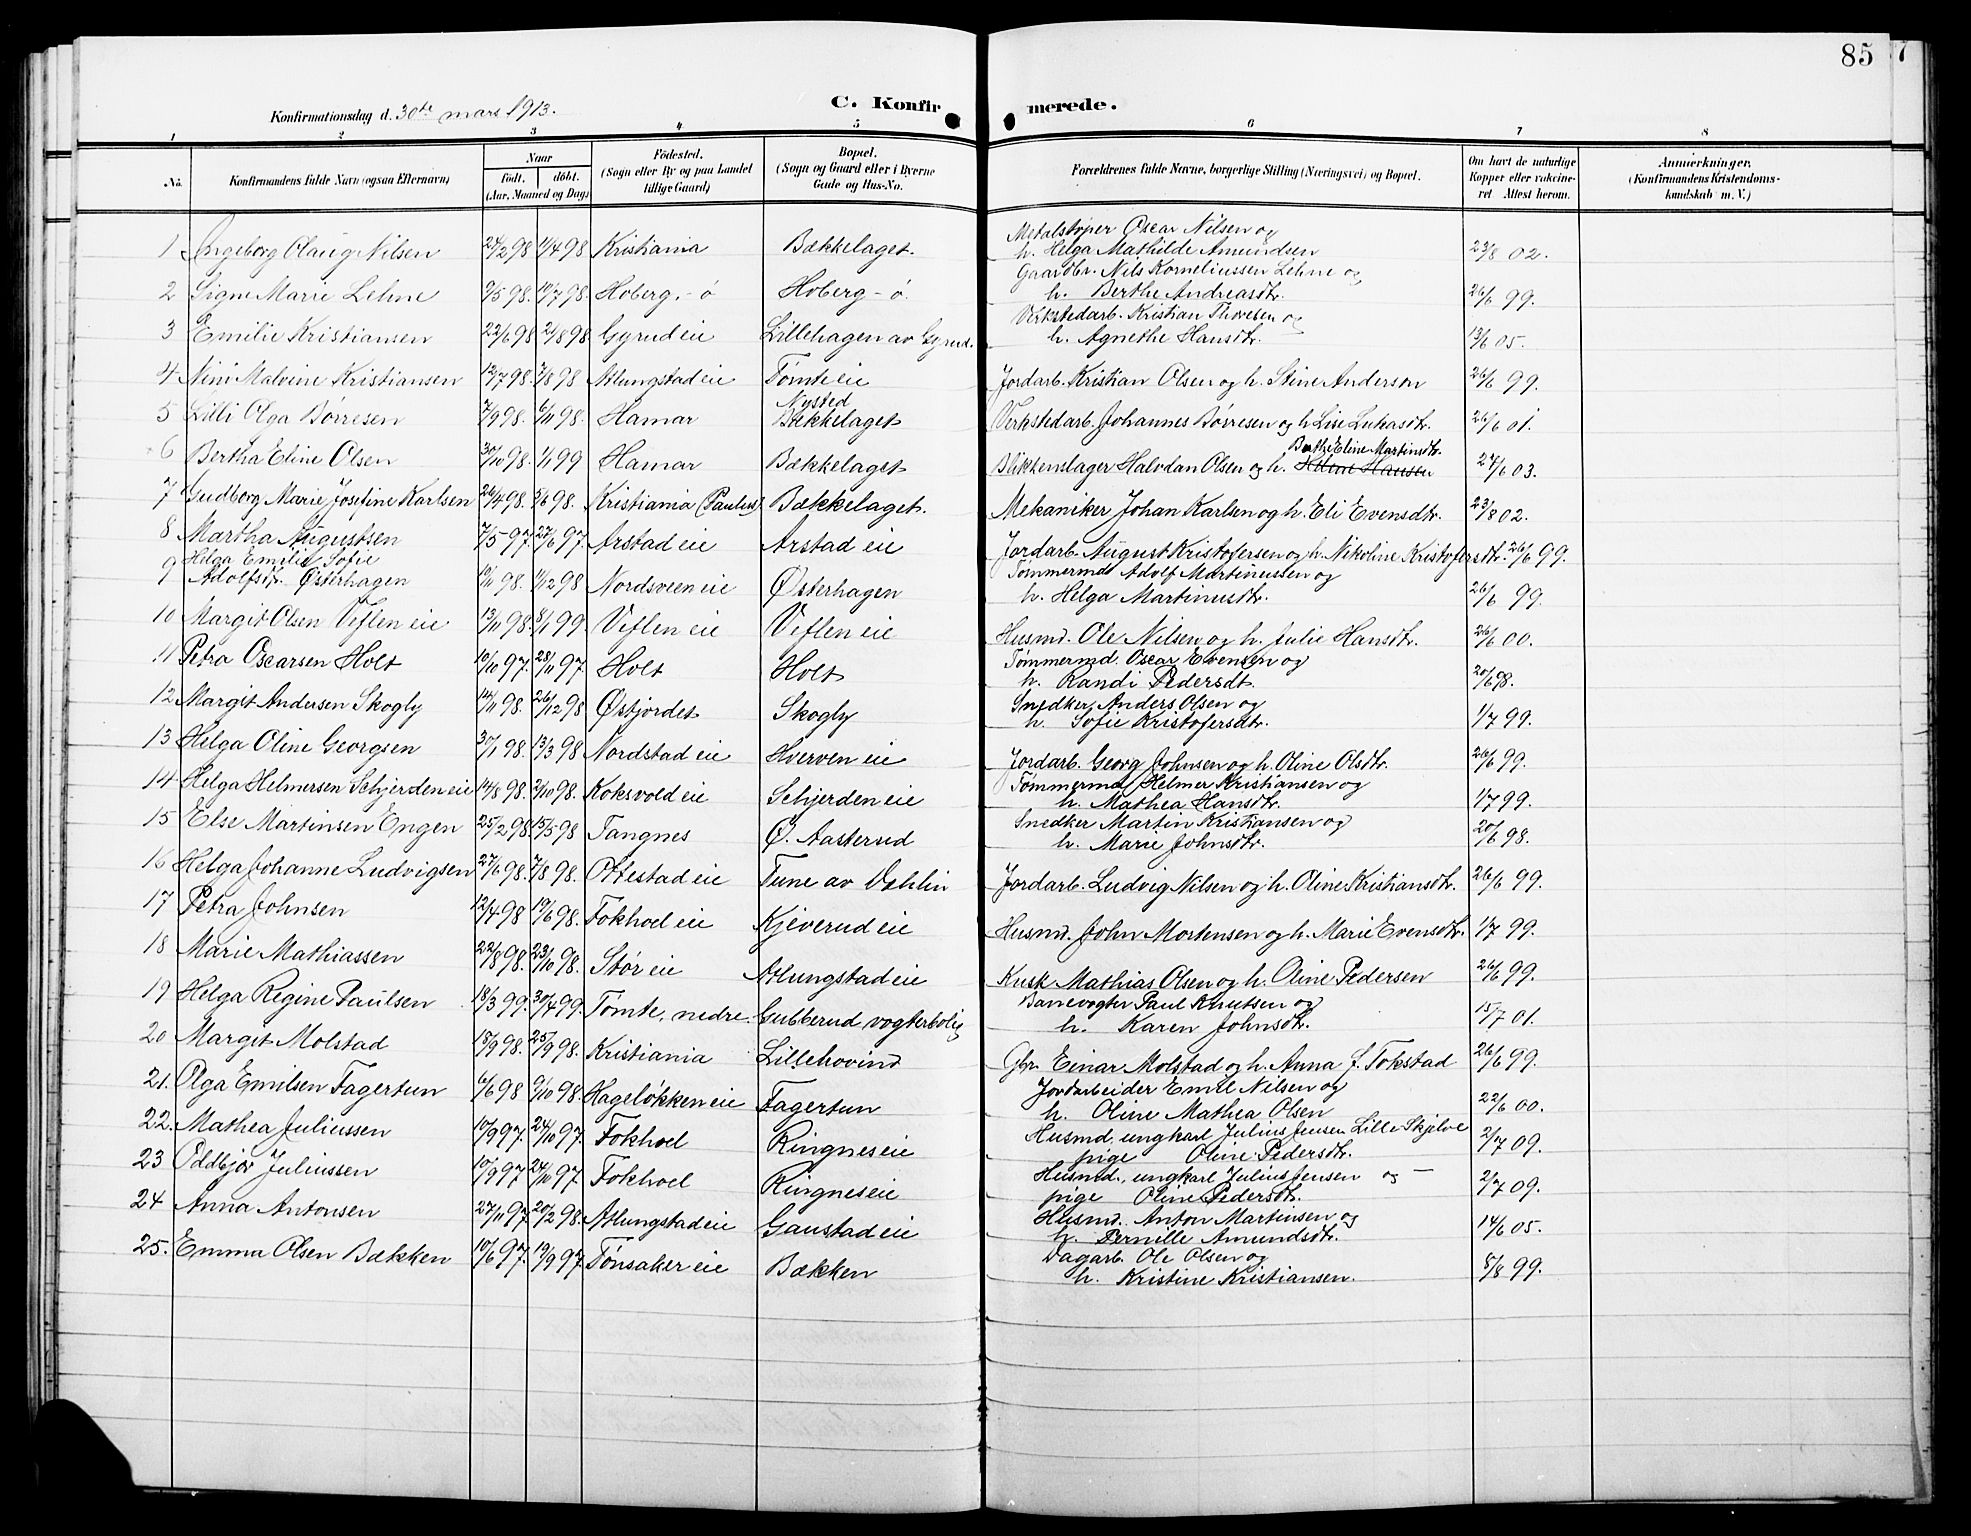 85
7
C. Konfirmerede.
Konfirmationsdag d. 30te mars 1913.
1 2 3 4 5 6 7 8
No.
Konfirmandens fulde Navn (ogsaa Efternavn)
Naar
födt. döbt.
(Aar, Maaned og Dag)
Födested.
(Sogn eller By og paa Landet
tillige Gaard)
Bopæl.
(Sogn og Gaard eller i Byerne
Gade og Hus-No.
Forældrenes fulde Navne, borgerlige Stilling (Næringsvei) og Bopæl.
Om havt de naturlige
Kopper eller vakcine-
ret Attest herom.
Anmærkninger.
(Konfirmandens Kristendoms-
kundskab m. V.)
Metalstøper Oscar Nilsen og
1 Ingeborg Olaug Nilsen 24/2 98 11/4 98 Kristiania Bækkelaget. h. Helga Mathilde Amundsen 23/8 02.
Gaardbr. Nils Korneliussen Lehne og
2 Signe Marie Lehne 9/5 98. 10/7 98. Hoberg, ö Hoberg - ö. h. Berthe Andreasdtr. 26/6 99.
Verkstedarb. Kristian Thoresen og
3 Emilie Kristiansen 22/6 98 21/8 98 Gyrud eie Lillehagen av Gyrud. h. Agnethe Hansdtr. 13/6 05.
4 Nini Malvine Kristiansen 12/7 98. 7/8 98 Atlungstad eie Tømte eie Jordarb. Kristian Olsen og h. Stine Andersen 26/6 99.
Nysted
5 Lilli Olga Børresen 7/9 98. 6/11 98. Hamar Bækkelaget Verkstedarb. Johannes Børresen og h. Lise Lukasdtr. 26/6 01.
Berthe Eline Martinsdtr.
6 Bertha Eline Olsen 30/10 98. 1/1 99 Hamar Bækkelaget Blikkenslager Halvdan Olsen og h. Helene Hansen 27/6 03.
7 Gudborg Marie Josefine Karlsen 26/4 98. 5/6 98. Kristiania (Paulus) Bækkelaget. Mekaniker Johan Karlsen og h. Eli Evensdtr. 23/8 02.
8 Martha Augustsen 7/5 97. 27/6 97. Arstad eie Arstad eie Jordarb. August Kristofersen og h. Nikoline Kristofersdtr. 26/6 99.
Helga Emilie Sofie Tømmermd Adolf Martinussen og
9 Adolfsdtr. Østerhagen 10/11 98. 11/2 98 Nordsveen eie Østerhagen h. Helga Martinusdtr. 26/6 99.
10 Margit Olsen Veflen eie 13/11 98. 8/1 99 Veflen eie Veflen eie Husmd. Ole Nilsen og h. Julie Hansdtr. 26/6 00.
Tømmermd. Oscar Evensen og
11 Petra Oscarsen Holt 10/10 97. 28/11 97 Holt Holt h. Randi Pedersdt. 20/6 98.
Snedker Anders Olsen og
12 Margit Andersen Skogly 14/11 98. 26/12 98 Østjordet Skogly h. Sofie Kristofersdtr. 1/7 99.
13 Helga Oline Georgsen 30/1 98. 13/3 98 Nordstad eie Hverven eie Jordarb. Georg Johnsen og h. Oline Olsdtr. 26/6 99.
Tømmermd Helmer Kristiansen og
14 Helga Helmersen Schjerden eie 14/8 98. 2/10 98. Koksvold eie Schjerden eie h. Mathea Hansdtr. 1/7 99.
Snedker Martin Kristiansen og
15 Else Martinsen Engen 25/2 98. 15/5 98 Tangnes Ø. Aasterud h. Marie Johnsdtr. 20/6 98.
16 Helga Johanne Ludvigsen 27/6 98. 7/8 98. Ottestad eie Tune av Dahlin Jordarb. Ludvig Nilsen og h. Oline Kristiansdtr. 26/6 99.
17 Petra Johnsen 12/4 98 19/6 98. Fokhol eie Kjeverud eie Husmd. John Mortensen og h. Marie Evensdtr. 1/7 99.
18 Marie Mathiassen 22/8 98. 23/10 98. Stør eie Atlungstad eie Kusk Mathias Olsen og h. Oline Pedersen 26/6 99.
Banevogter Paul Knutsen og
19 Helga Regine Paulsen 18/3 99. 30/4 99. Tømte, nedre. Gubberud vogterbolig h. Karen Johnsdtr. 15/7 01.
20 Margit Molstad 18/9 98. 25/9 98. Kristiania Lillehovind Gbr. Einar Molstad og h. Anna f. Tokstad 26/6 99.
Jordarbeider Emil Nilsen og
21. Olga Emilsen Fagertun 4/6 98 9/10 98. Hageløkken eie Fagertun h. Oline Mathea Olsen 22/6 00.
Husmd, ungkarl Julius Jensen Lille Skjelve
22. Mathea Juliussen 10/9 97. 24/10 97. Fokhol Ringnes eie pige Oline Pedersdtr. 2/7 09.
Husmd., ungkarl Julius Jensen og —
23 Oddbjør Juliussen 10/9 97 24/10 97 Fokhol Ringnes eie pige Oline Pedersdtr. 2/7 09.
Husmd. Anton Martinsen og
24 Anna Antonsen 27/11 97. 20/2 98. Atlungstad eie Gaustad eie h. Pernille Amundsdtr. 14/6 05.
Dagarb. Ole Olsen og
25. Emma Olsen Bækken 10/6 97. 19/9 97 Tønsaker eie Bækken h. Kristine Kristiansen. 8/8 99.